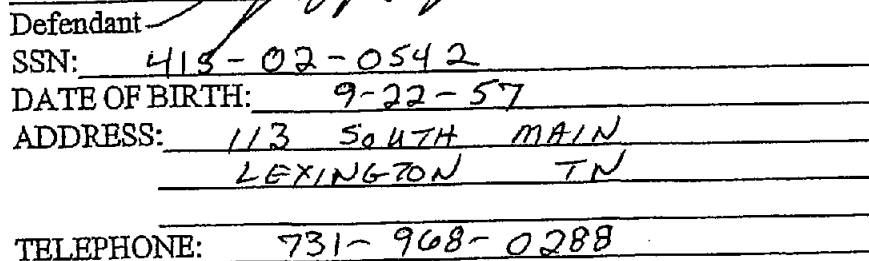 Defendant
SSN: 415-02-0542
DATE OF BIRTH: 9-22-57
ADDRESS: 113 SOUTH MAIN
LEXINGTON TN
TELEPHONE: 731-968-0288